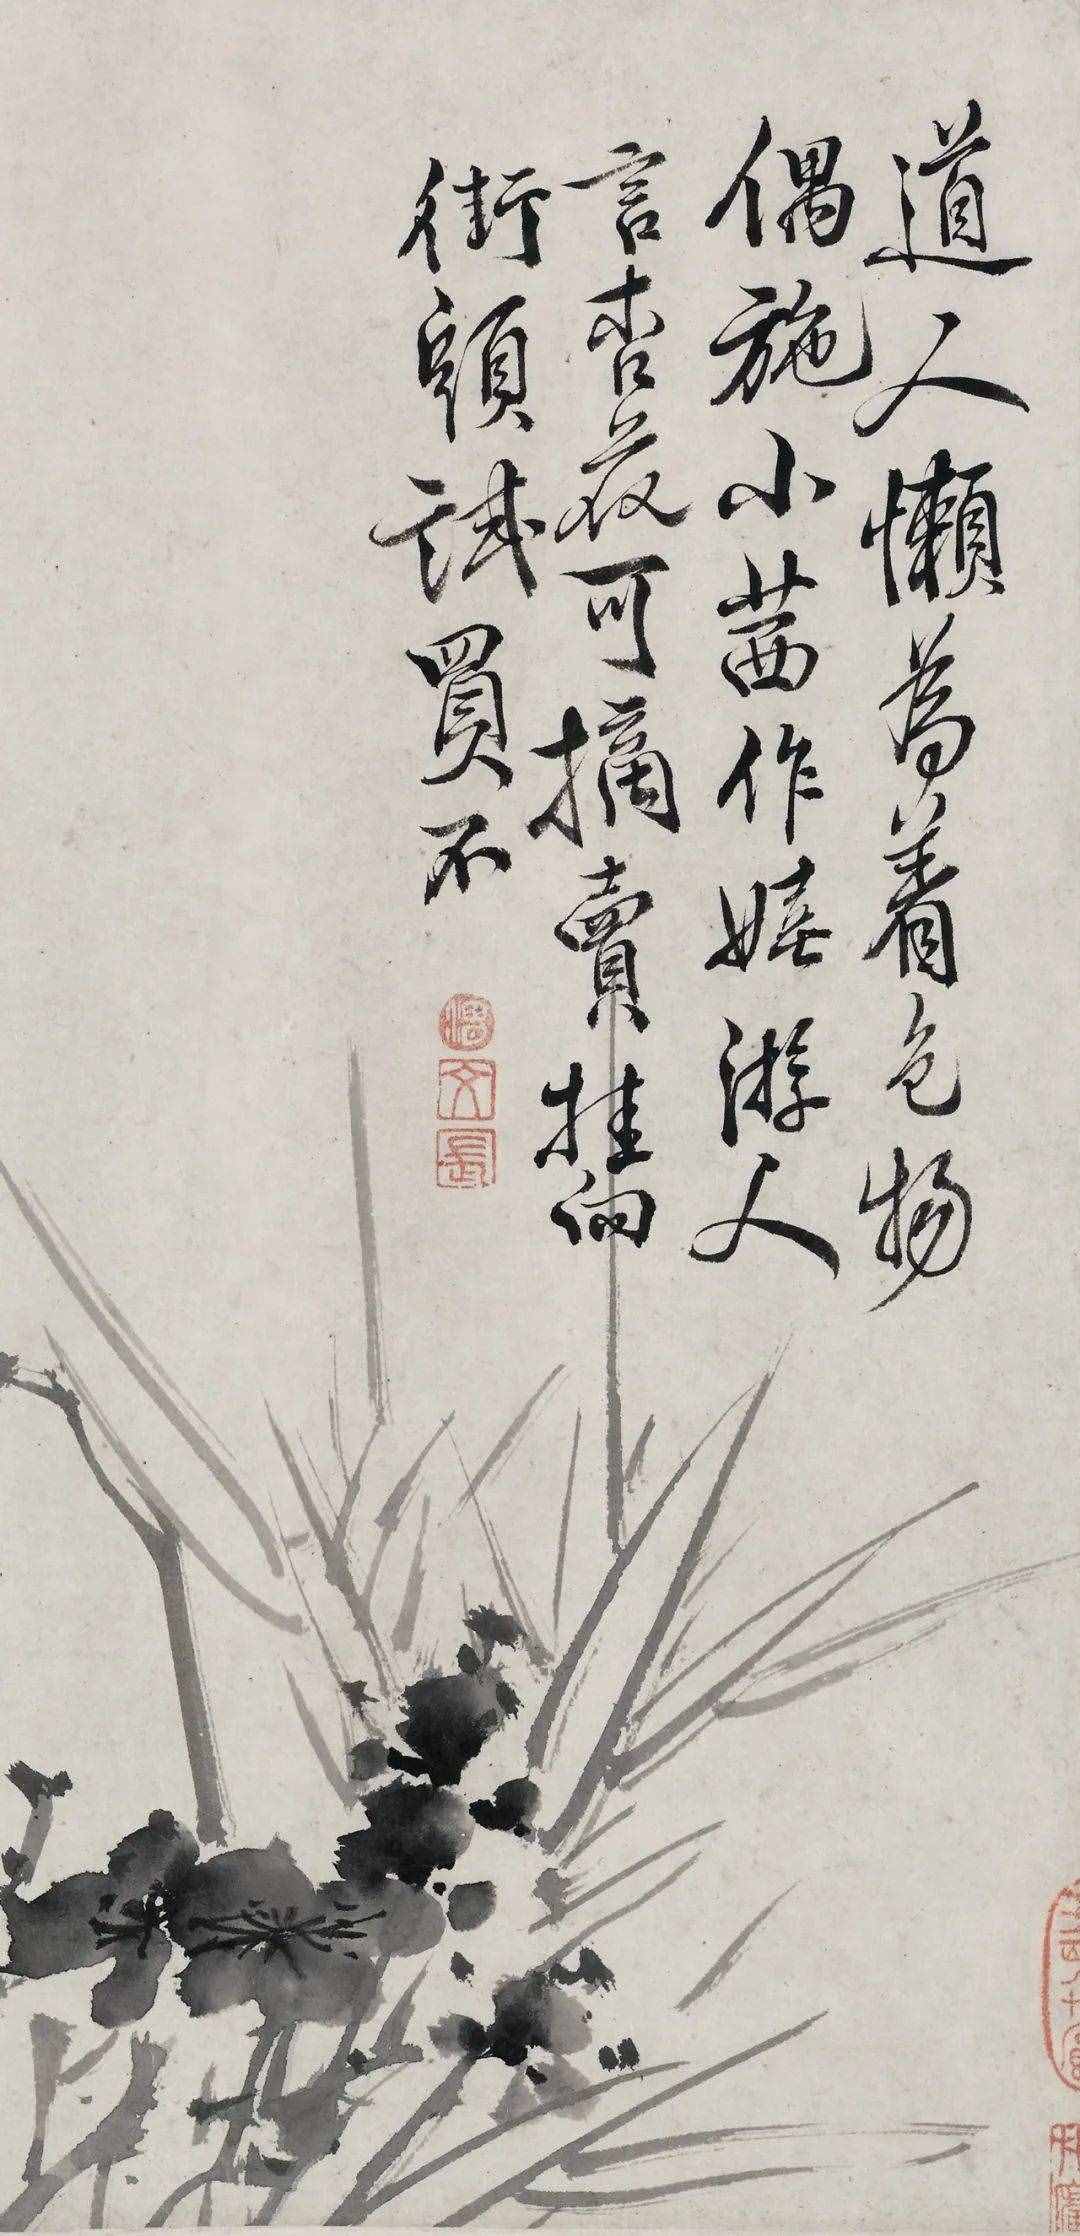 道人懶為著色物
偶施小茜作嬉游人
言杏花可摘賣挂向
街頭試買不
文長